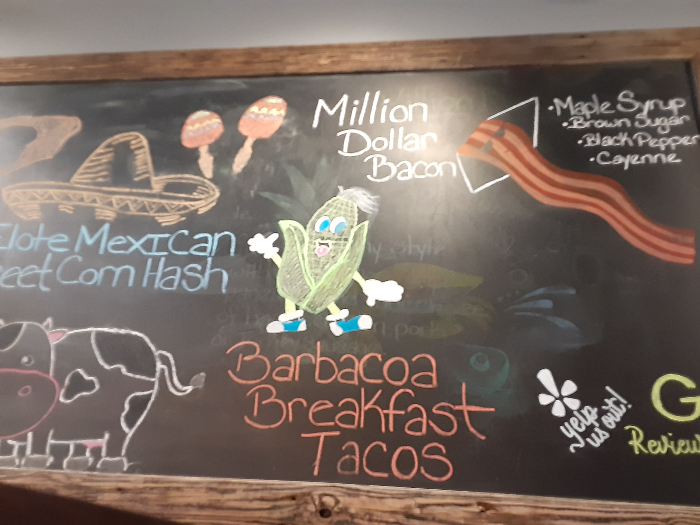 Million
Dollar
Bacon
•Maple Syrup
•Brown Sugar
•Black Pepper
•Cayenne
Elote Mexican
reet Corn Hash
Barbacoa
Breakfast
Tacos
yelp
us out!
G
Review